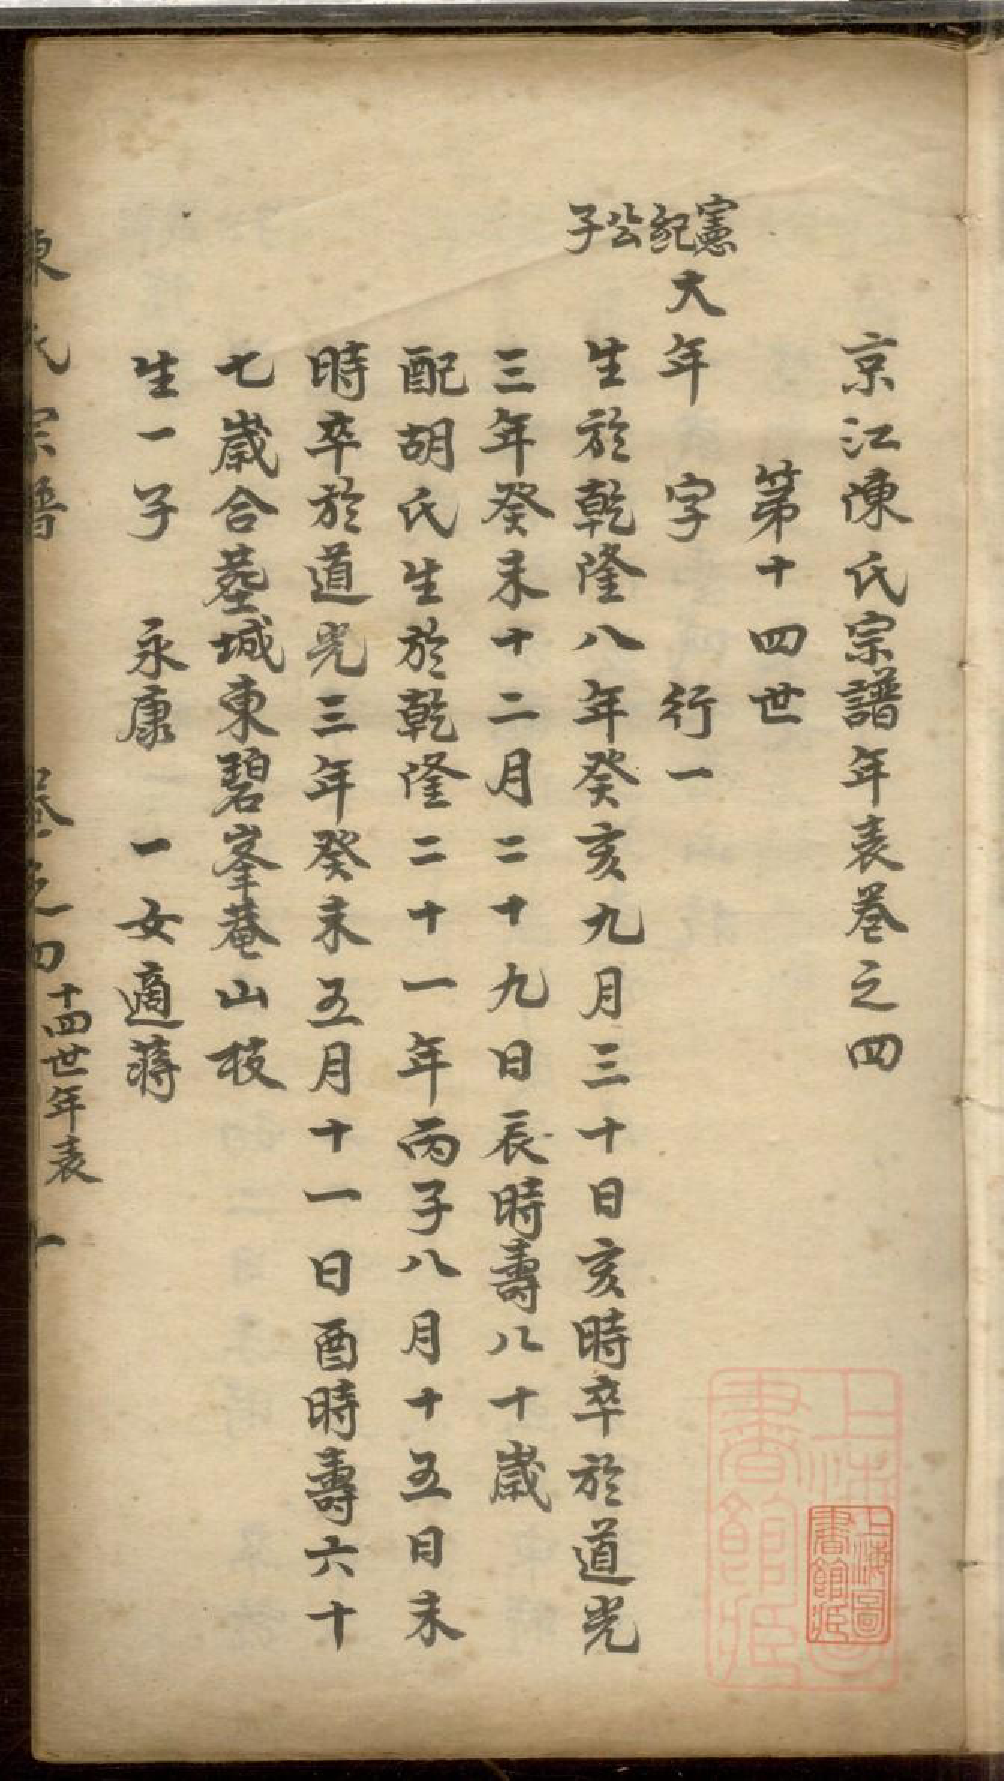 京江陳氏宗譜年表卷之四
第十四世
憲記公子
大年　字　行一
生於乾隆八年癸亥九月三十日亥時卒於道光
三年癸未十二月二十九日辰時壽八十歲
配胡氏生於乾隆二十一年丙子八月十五日未
時卒於道光三年癸未五月十一日酉時壽六十
七歲合塟城東碧峯菴山枝
生一子　永康　一女適蔣
陳氏宗譜　卷之四　十四世年表　一
上海圖書館藏
上海圖書館藏